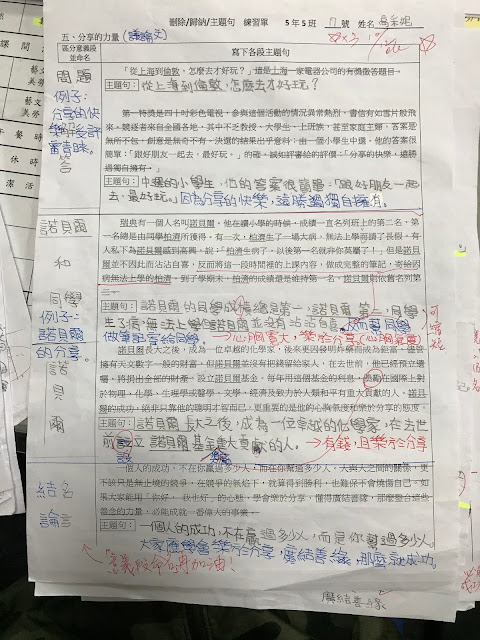 刪除/歸納/主題句 練習單 5年5班 7號 姓名
五、分享的力量(議論文)
區分意義段並命名
寫下各段主題句
問題
例子:
分享的快樂
答
「從上海到倫敦,怎麼去才好玩?」這是上海一家電器公司的有獎徵答題目。
主題句:從上海到倫敦,怎麼去才好玩?
第一特獎是四十吋彩色電視,參與這個活動的情況異常熱烈,書信有如雪片般飛來。競逐者來自全國各地,其中不乏教授、大學生、上班族,甚至家庭主婦,答案是無所不包,創意是無奇不有。決選的結果出乎意料,由一個小學生中選。他的答案很簡單:「跟好朋友一起去,最好玩。」的確,誠如評審給的評價:「分享的快樂,遠勝過獨自擁有。」
主題句:中選的小學生,他的答案很簡單:「跟好朋友一起去,最好玩。」因為分享的快樂,遠勝過獨自擁有。
諾貝爾和同學
例子:
諾貝爾的分享。
諾貝爾
瑞典有一個人名叫諾貝爾,他在讀小學的時候,成績一直名列班上的第二名,第一名總是由同學柏濟所獲得。有一次,柏濟生了一場大病,無法上學而請了長假,有人私下為諾貝爾感到高興,說:「柏濟生病了,以後第一名就非你莫屬了!」但是諾貝爾並不因此而沾沾自喜,反而將這一段時間裡的上課內容,做成完整的筆記,寄給因病無法上學的柏濟。到了學期末,柏濟的成績還是維持第一名,諾貝爾則依舊名列第二。
主題句:諾貝爾的同學成績總是第一,諾貝爾第二,同學生了病,無法上學但諾貝爾並沒有沾沾自喜,反而寫同學做筆記寄給同學。→心胸寬大,樂於分享(心胸氣度)
可縮短
諾貝爾長大之後,成為一位卓越的化學家,後來更因發明炸藥而成為鉅富。儘管擁有天文數字一般的財富,但諾貝爾並沒有把錢留給家人,在去世前,他已經預立遺囑,將捐出全部的財產,設立諾貝爾基金,每年用這個基金的利息,獎勵在國際上對於物理、化學、生理學或醫學、文學、經濟及致力於人類和平有重大貢獻的人。諾貝爾的成功,絕非只靠他的聰明才智而已,更重要的是他的心胸氣度和樂於分享的態度。
主題句:諾貝爾長大之後,成為一位卓越的化學家,在去世前設立諾貝爾基金重大貢獻的人。→有錢,且樂於分享
結論
一個人的成功,不在你贏過多少人,而在你幫過多少人。人與人之間的關係,更不該只是無止境的競爭,在競爭的氣焰下,就算得到勝利,也難保不會傷傷自己。如果大家能用「你好,我也好」的心態,學會樂於分享,懂得廣結善緣,那麼整合這些
主題句:一個人的成功,不在贏過多少人,而是你幫過多少人。
大家應學會樂於分享,廣結善緣,那麼就成功。
意義段命名再加油!
廣結善緣